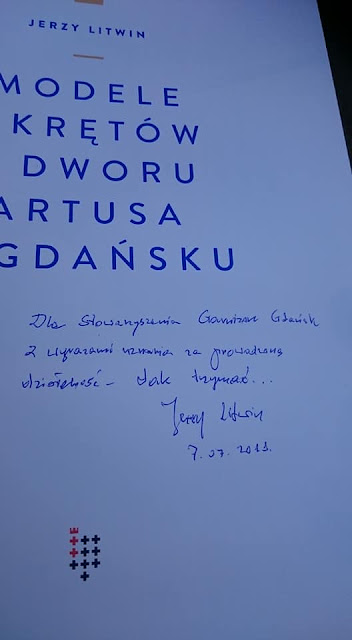 JERZY LITWIN
MODELE
KRĘTÓW
DWORU
ARTUSA
GDAŃSKU
Dla Stowarzyszenia Garnizon Gdańsk
z wyrazami uznania za prowadzoną
działalność – tak trzymać...
Jerzy Litwin
7.07.